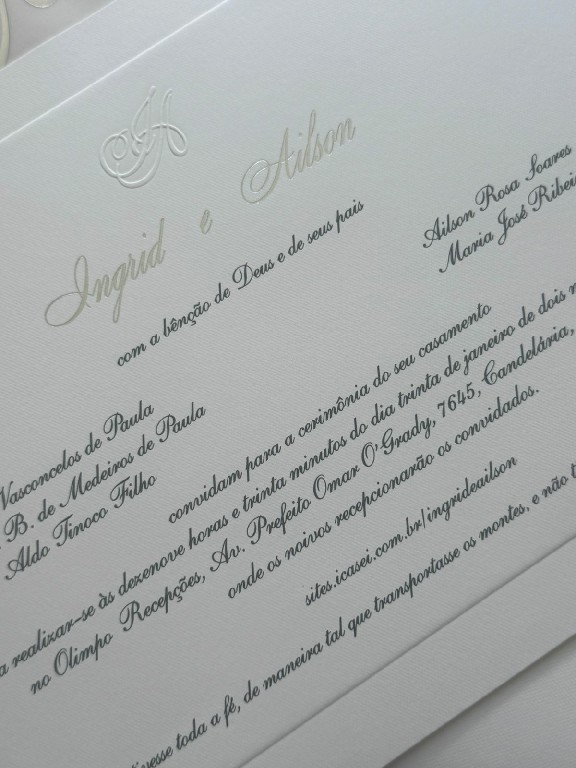 IA
Ingrid e Ailson
com a bênção de Deus e de seus pais
Vasconcelos de Paula
B. de Medeiros de Paula
Aldo Tinoco Filho
Ailson Rosa Soares
Maria José
convidam para a cerimônia do seu casamento
a realizar-se às dezenove horas e trinta minutos do dia trinta de janeiro de dois
no Olimpo Recepções, Av. Prefeito Omar O'Grady, 7645, Candelária,
onde os noivos recepcionarão os convidados.
sites.icasei.com.br/ingrideailson
toda a fé, de maneira tal que transportasse os montes, e não